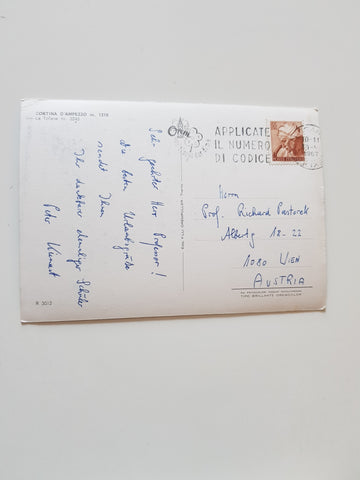 CORTINA D'AMPEZZO m. 1218
Le Tofane m. 3243
Sehr geehrter Herr Professor!
Die besten Urlaubsgrüße
sendet Ihnen
Ihr dankbarer ehemaliger Schüler
Peter
APPLICATE
IL NUMERO
DI CODICE
Herrn
Prof. Richard Pastorek
Albertg 18-22
1080 WIEN
AUSTRIA
R 3012